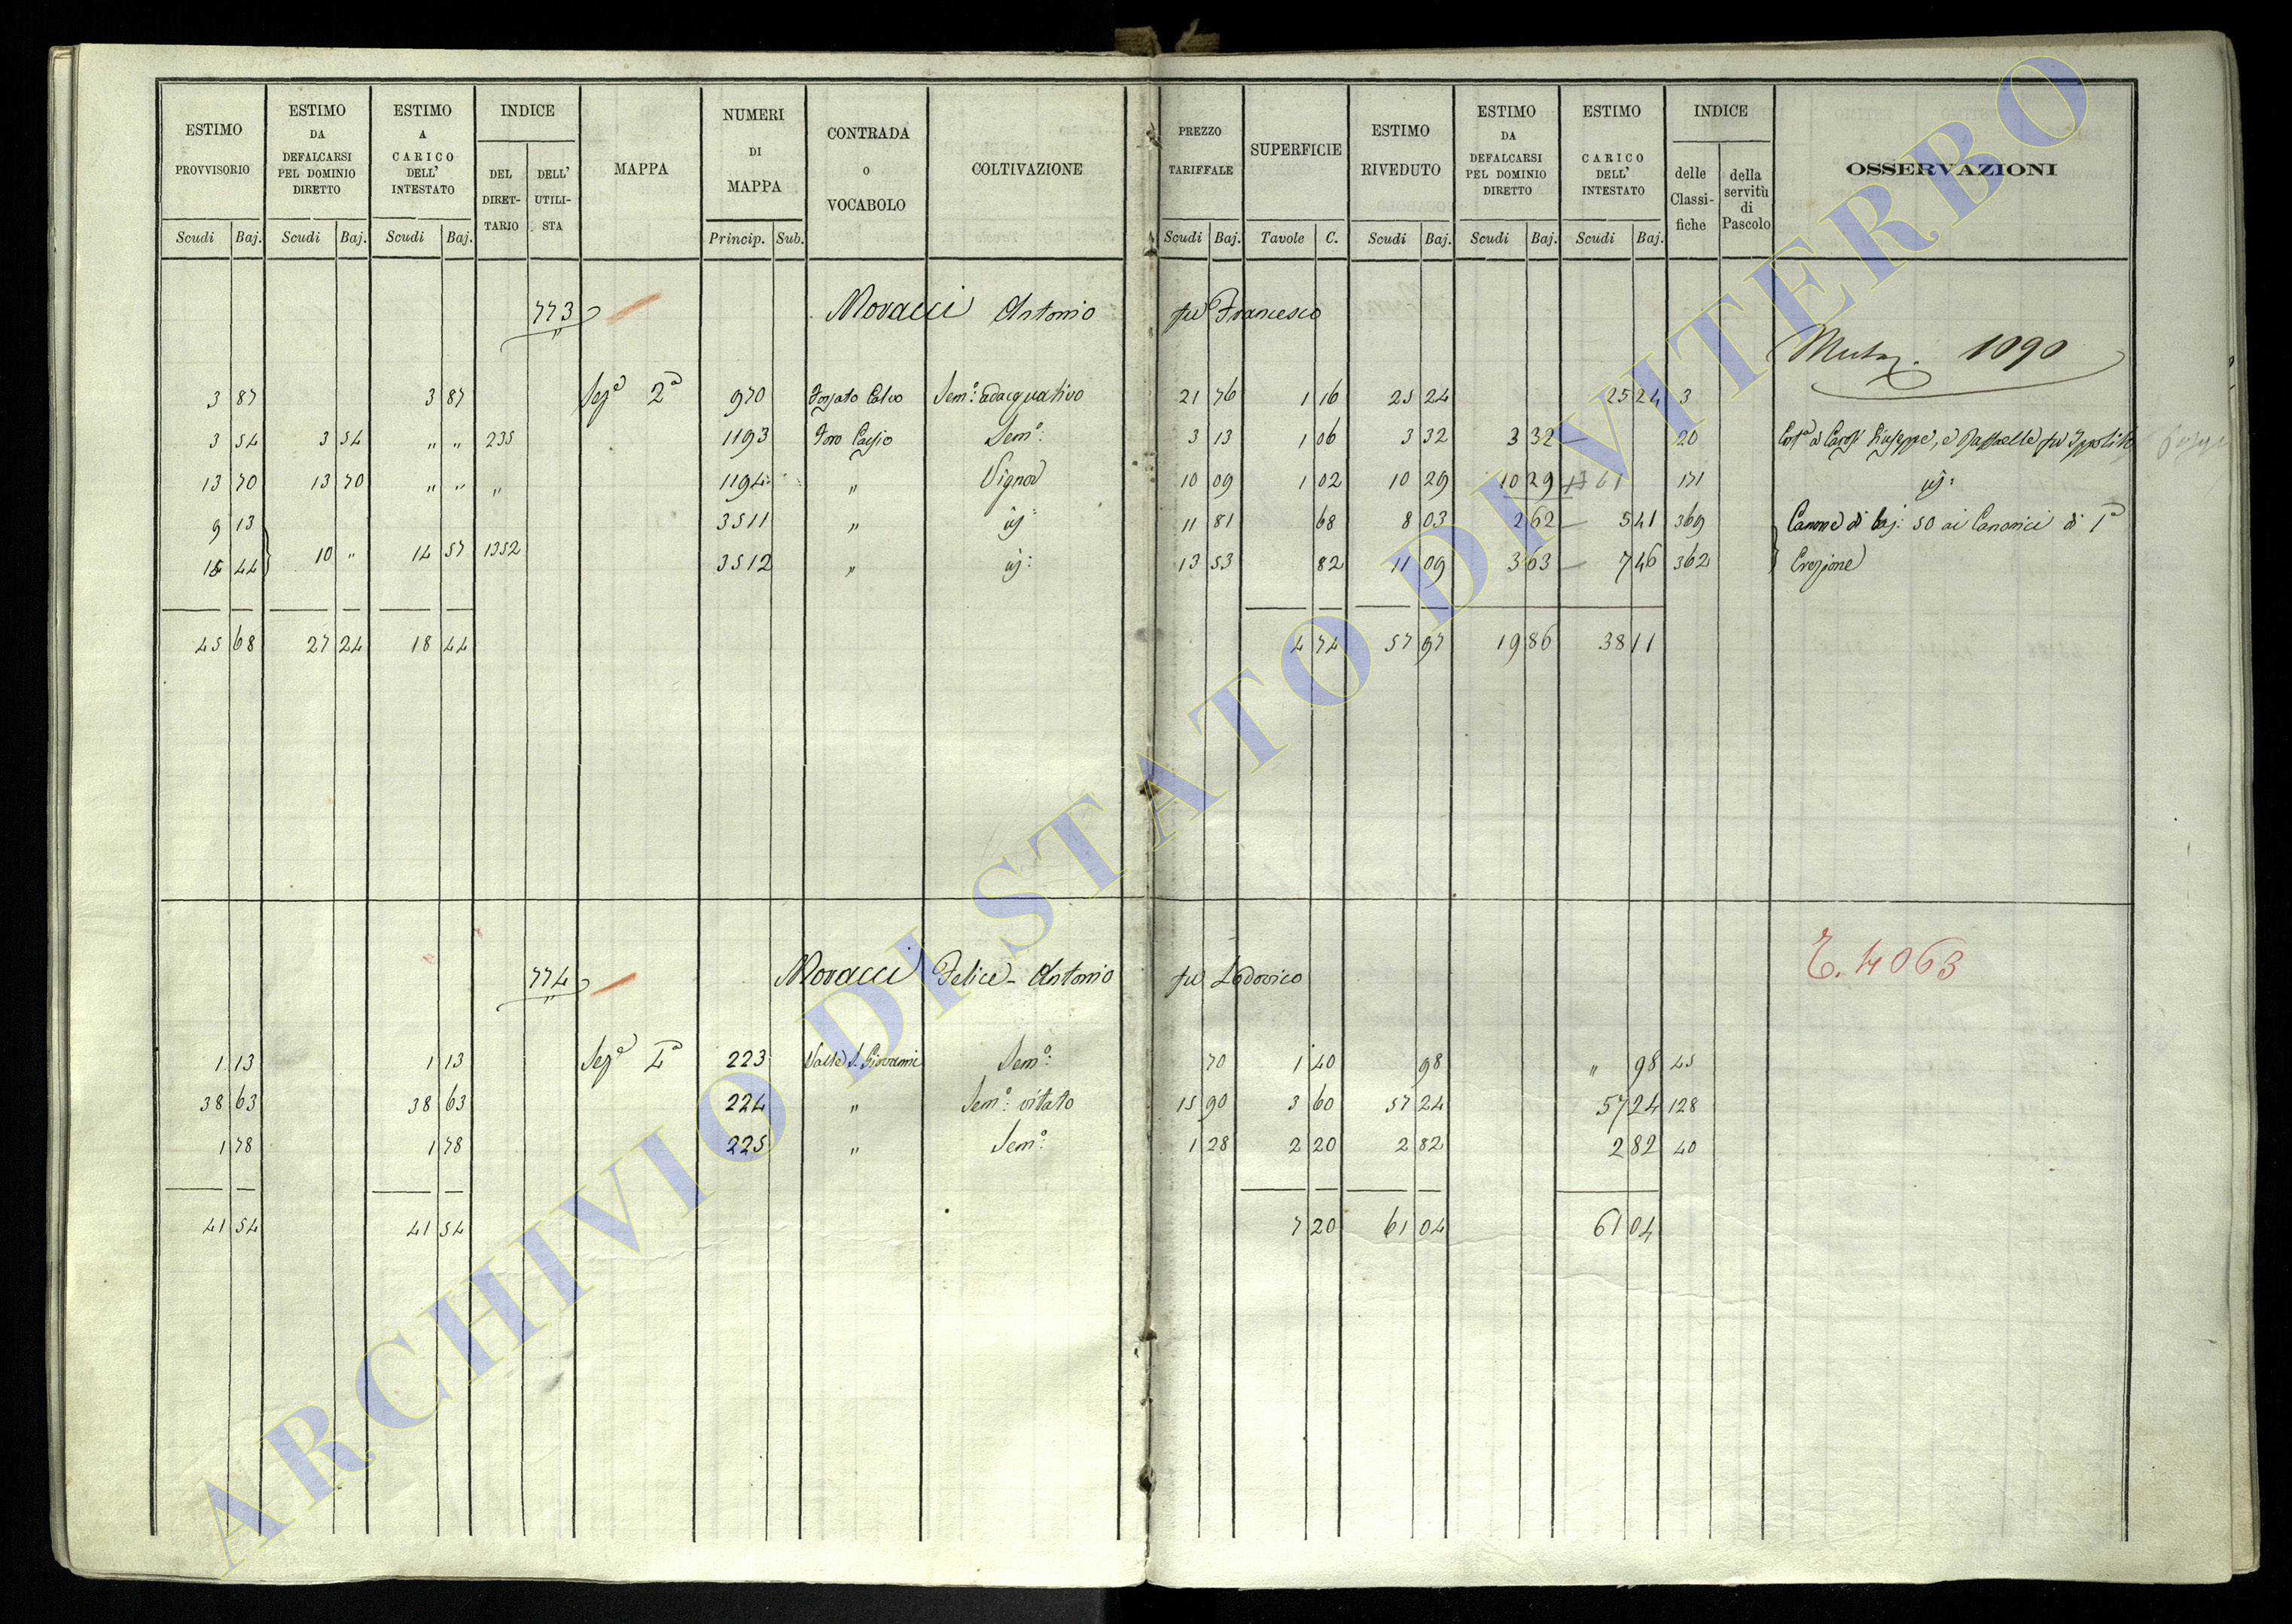 ESTIMO PROVVISORIO Scudi Baj.
ESTIMO DA DEFALCARSI PEL DOMINIO DIRETTO Scudi Baj.
ESTIMO A CARICO DELL' INTESTATO Scudi Baj.
INDICE DEL DIRET-TARIO DELL' UTILI-STA
MAPPA
NUMERI DI MAPPA Princip. Sub.
CONTRADA o VOCABOLO
COLTIVAZIONE
PREZZO TARIFFALE Scudi Baj.
SUPERFICIE Tavole C.
ESTIMO RIVEDUTO Scudi Baj.
ESTIMO DA DEFALCARSI PEL DOMINIO DIRETTO Scudi Baj.
ESTIMO A CARICO DELL' INTESTATO Scudi Baj.
INDICE delle Classi-fiche della servitù di Pascolo
OSSERVAZIONI
773 Moracci Antonio fu Francesco
1090
3 87 3 87 Seze 2a 970 Calvo Sem:o adacquativo 21 76 1 16 25 24 25 24 3
3 54 3 54 " " 235 1193 Foro Cassio Sem:o 3 13 1 06 3 32 3 32 — 20 Giuseppe, e Raffaelle fu Ippolito
13 70 13 70 " " " 1194 " Vigna 10 09 1 02 10 29 10 29 171
9 13 3511 " 11 81 68 8 03 2 62 — 5 41 369 Canone di baj: 50 ai Canonici di Ia
15 44 10 " 14 57 1352 3512 " 13 53 82 11 09 3 63 — 7 46 362 Erezione
45 68 27 24 18 44 4 74 57 97 19 86 38 11
774 Moracci Felice - Antonio fu Lodovico
4063
1 13 1 13 223 Valle S. Giovanni Sem:o 70 1 40 98 " 98 45
38 63 38 63 224 " Sem:o vitato 15 90 3 60 57 24 57 24 128
1 78 1 78 225 " Sem:o 1 28 2 20 2 82 2 82 40
41 54 41 54 7 20 61 04 61 04
ARCHIVIO DI STATO DI VITERBO